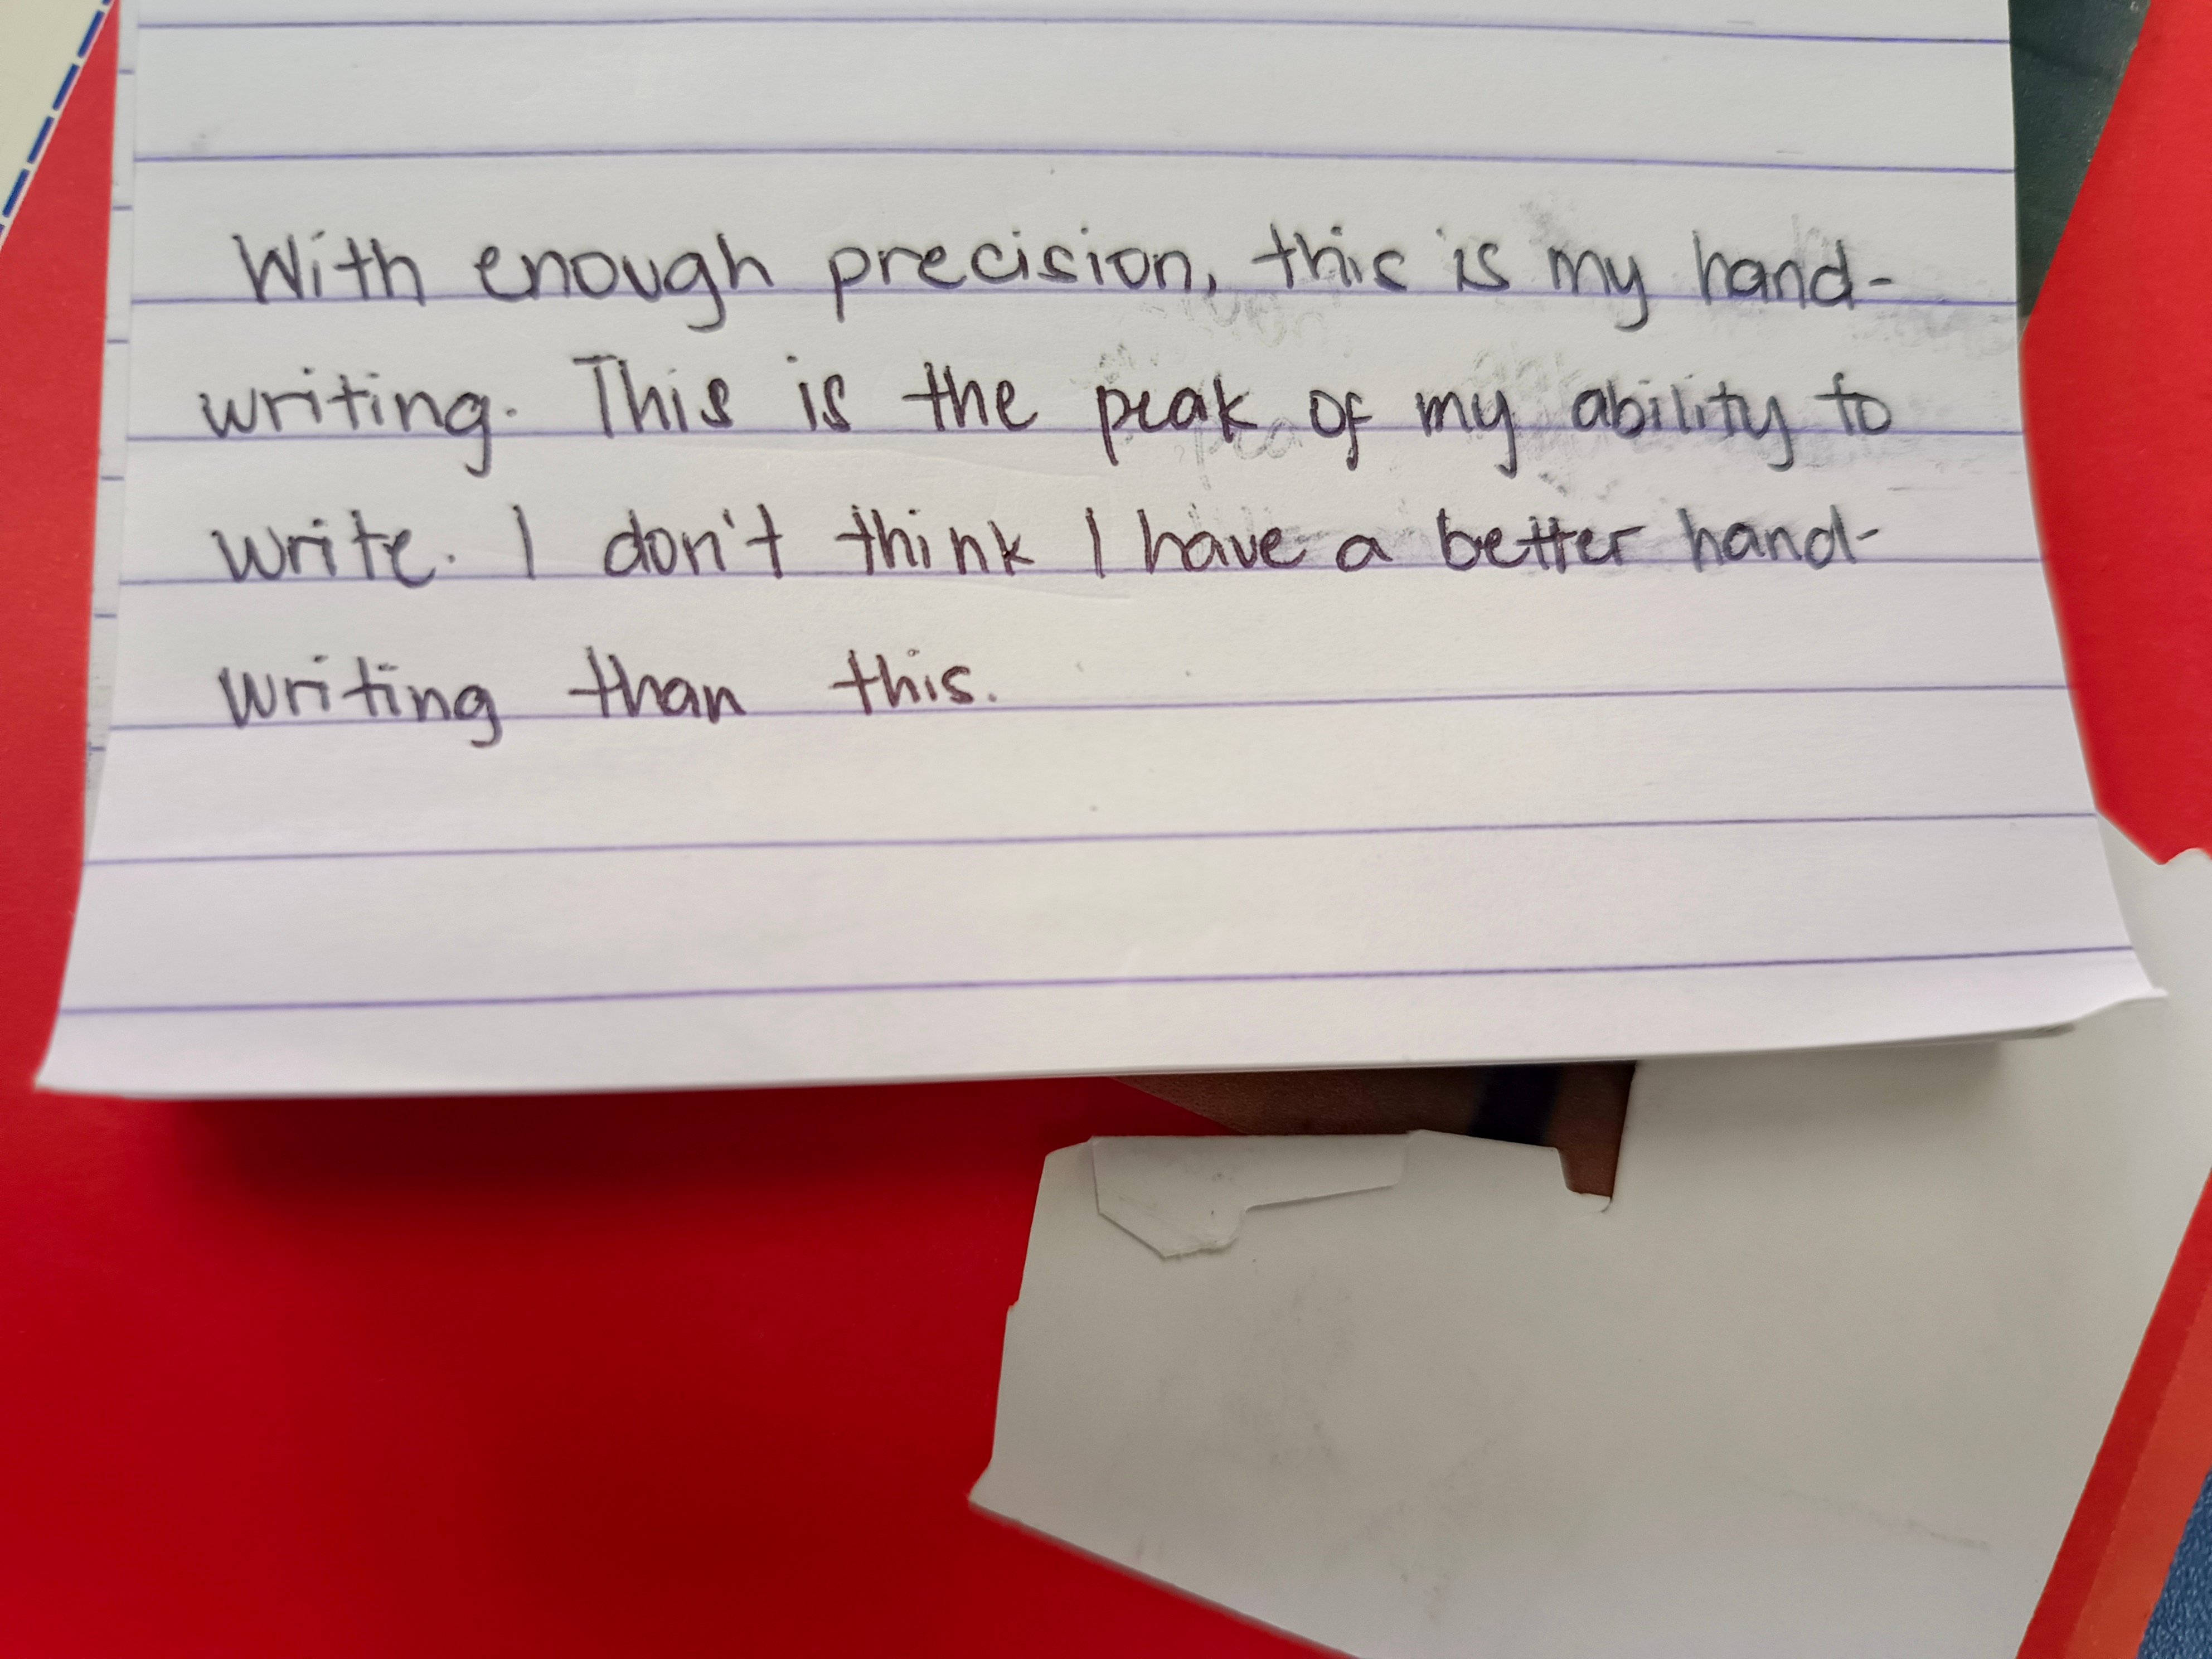 With enough precision, this is my hand-
writing. This is the peak of my ability to
write. I don't think I have a better hand-
writing than this.